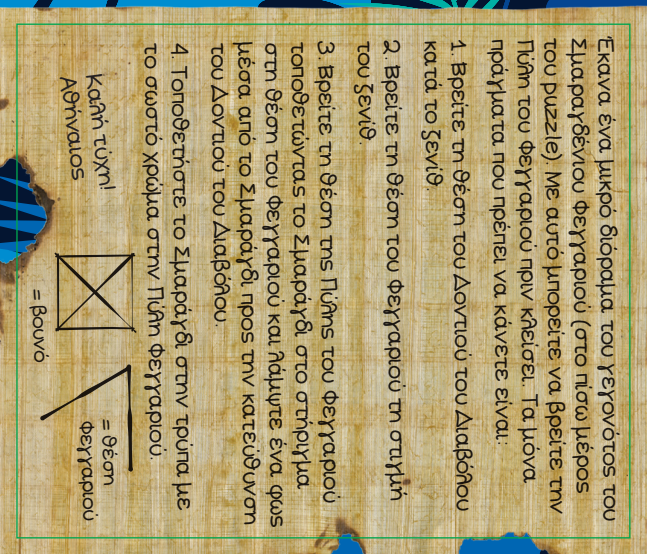 Έκανα ένα μικρό διόραμα του γεγονότος του
Σμαραγδένιου Φεγγαριού (στο πίσω μέρος
του puzzle). Με αυτό μπορείτε να βρείτε την
Πύλη του Φεγγαριού πριν κλείσει. Τα μόνα
πράγματα που πρέπει να κάνετε είναι:
1. Βρείτε τη θέση του Δοντιού του Διαβόλου
κατά το ξενίθ.
2. Βρείτε τη θέση του Φεγγαριού τη στιγμή
του ξενίθ.
3. Βρείτε τη θέση της Πύλης του Φεγγαριού
τοποθετώντας το Σμαράγδι στο στήριγμα
στη θέση του Φεγγαριού και λάμψτε ένα φως
μέσα από το Σμαράγδι προς την κατεύθυνση
του Δοντιού του Διαβόλου.
4. Τοποθετήστε το Σμαράγδι στην τρύπα με
το σωστό χρώμα στην Πύλη Φεγγαριού.
Καλή τύχη!
Αθήναιος
= βουνό
= θέση
Φεγγαριού